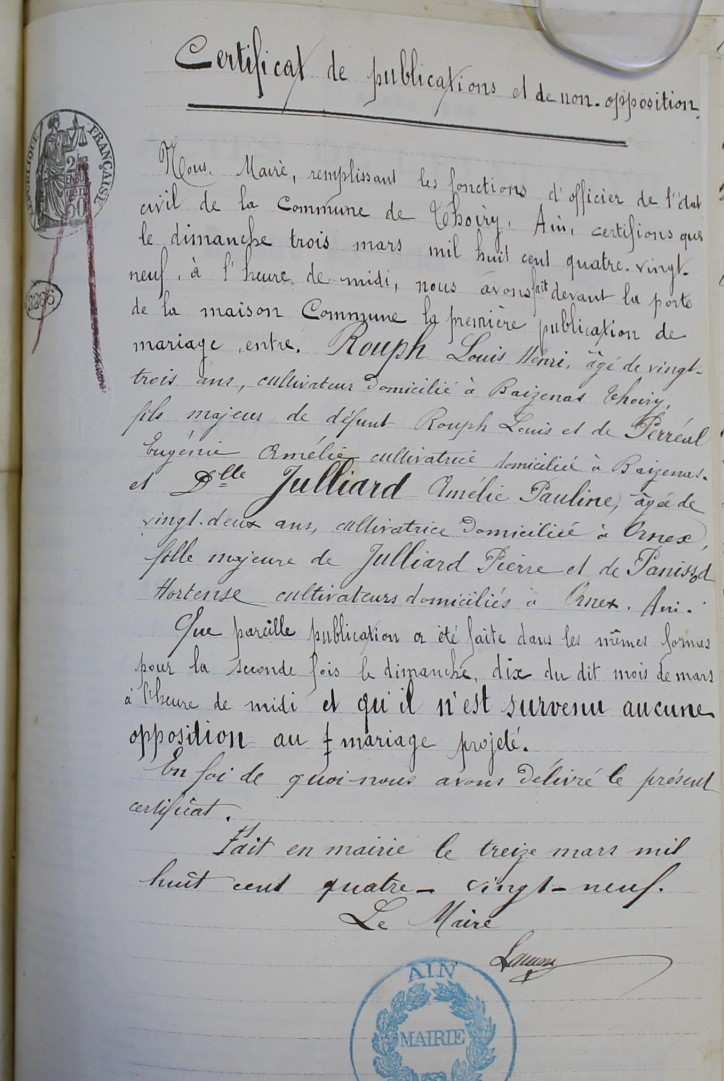 Certificat de publications et de non-opposition.
RÉPUBLIQUE FRANÇAISE
Nous. Maire, remplissant les fonctions d'officier de l'état
civil de la Commune de Thoiry, Ain, certifions que
le dimanche trois mars mil huit cent quatre-vingt-
neuf, à l'heure de midi, nous avons fait devant la porte
de la maison Commune la première publication de
mariage entre. Rouph Louis Henri, âgé de vingt-
trois ans, cultivateur domicilié à Baizenas Thoiry,
fils majeur de défunt Rouph Louis et de Perréal
Eugénie Amélie cultivatrice domicilié à Baizenas.
et Dlle Julliard Amélie Pauline, âgée de
vingt-deux ans, cultivatrice domiciliée à Ornex,
fille majeure de Julliard Pierre et de Panissod
Hortense cultivateurs domiciliés à Ornex. Ain.
Que pareille publication a été faite dans les mêmes formes
pour la seconde fois le dimanche, dix du dit mois de mars
à l'heure de midi et qu'il n'est survenu aucune
opposition au mariage projeté.
En foi de quoi nous avons délivré le présent
certificat.
Fait en mairie le treize mars mil
huit cent quatre-vingt-neuf.
Le Maire
AIN
MAIRIE